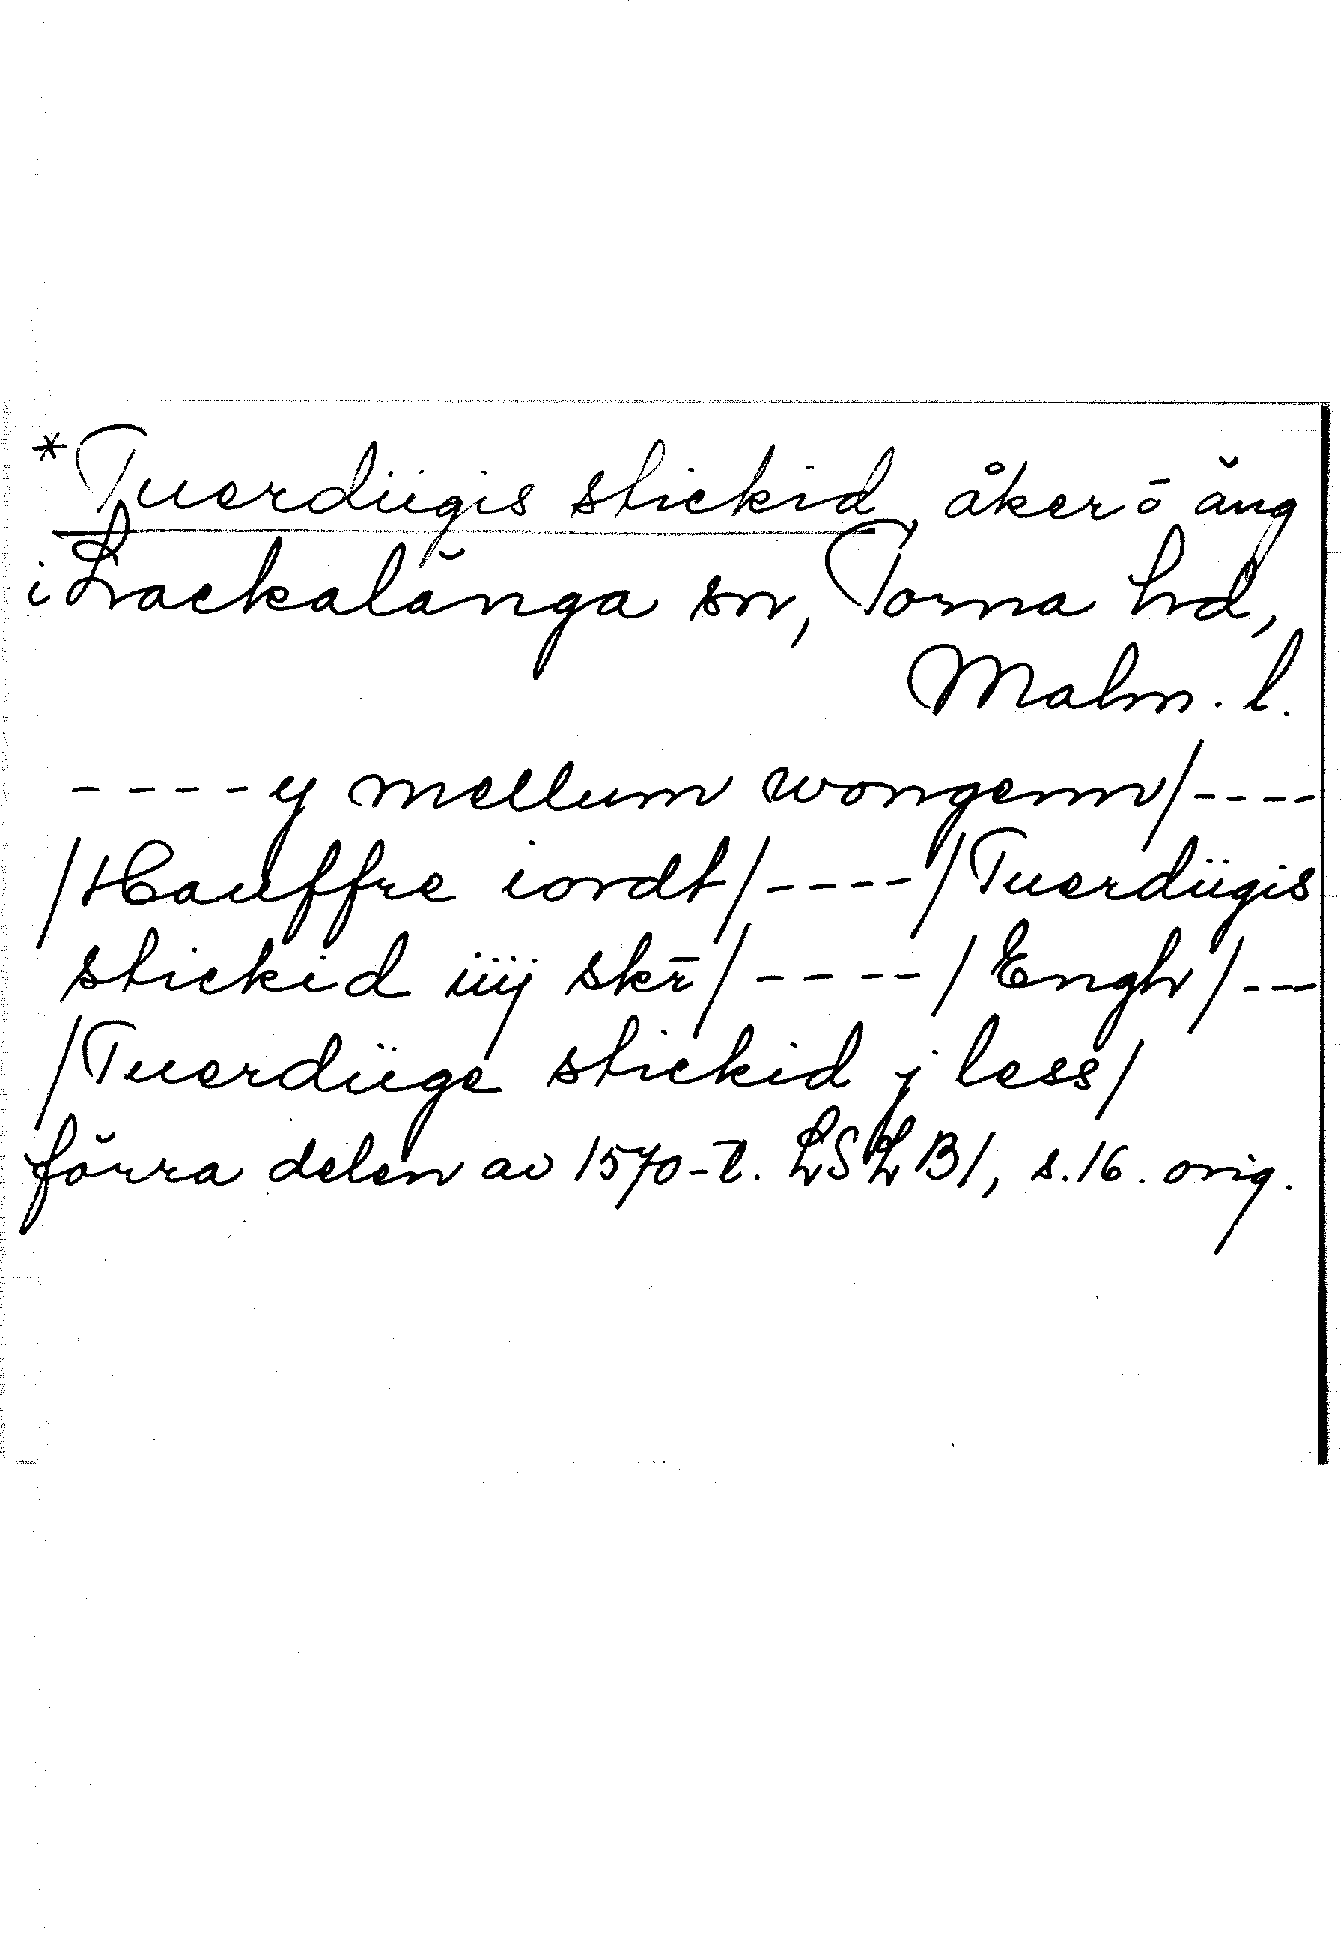 *Tuerdiigis stickid, åker o äng
i Lackalänga sn, Torna hd,
Malm. l.
----y mellum wongenn/----
/Hauffre iordt/----/Tuerdiigis
stickid iiij skr̄/----/Engh/---
/Tuerdiige stickid j less/
förra delen av 1570-t. LSLB1, s.16. orig.